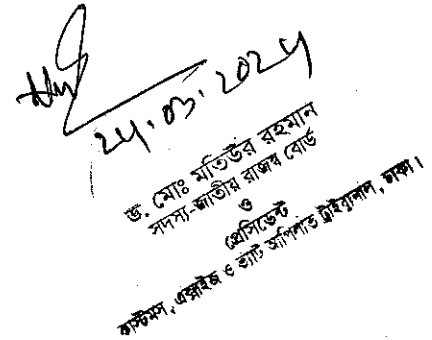 24.03.2024
ড. মোঃ মতিউর রহমান
সদস্য-জাতীয় রাজস্ব বোর্ড
ও
প্রেসিডেন্ট
কাস্টমস, এক্সাইজ ও ভ্যাট আপিলাত ট্রাইব্যুনাল, ঢাকা।